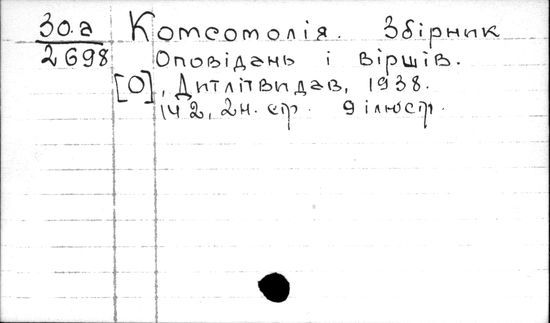 30.а Комсомолія. Збірник
2698 Оповідань і віршів.
[О], Дитлітвидав, 1938.
142, 2 н. стр. 9 ілюстр.